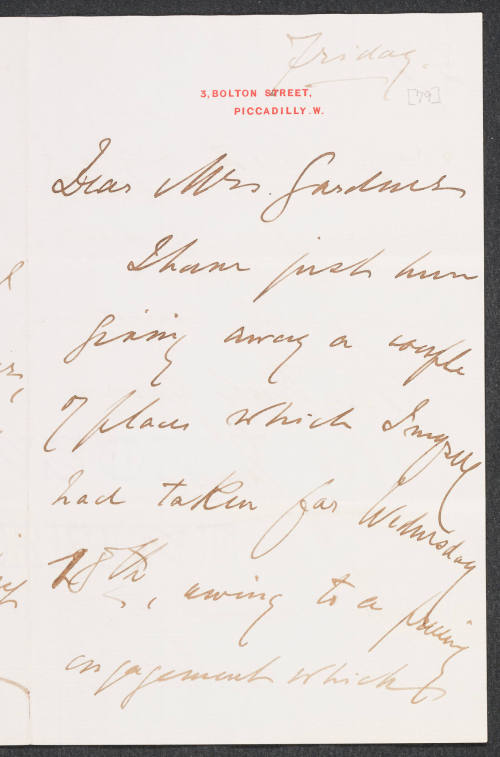 Friday.
3, BOLTON STREET,
PICCADILLY. W.
[79]
Dear Mrs. Gardner
I have just been
giving away a couple
of places which I myself
had taken for Wednesday
18th, owing to a
engagement which